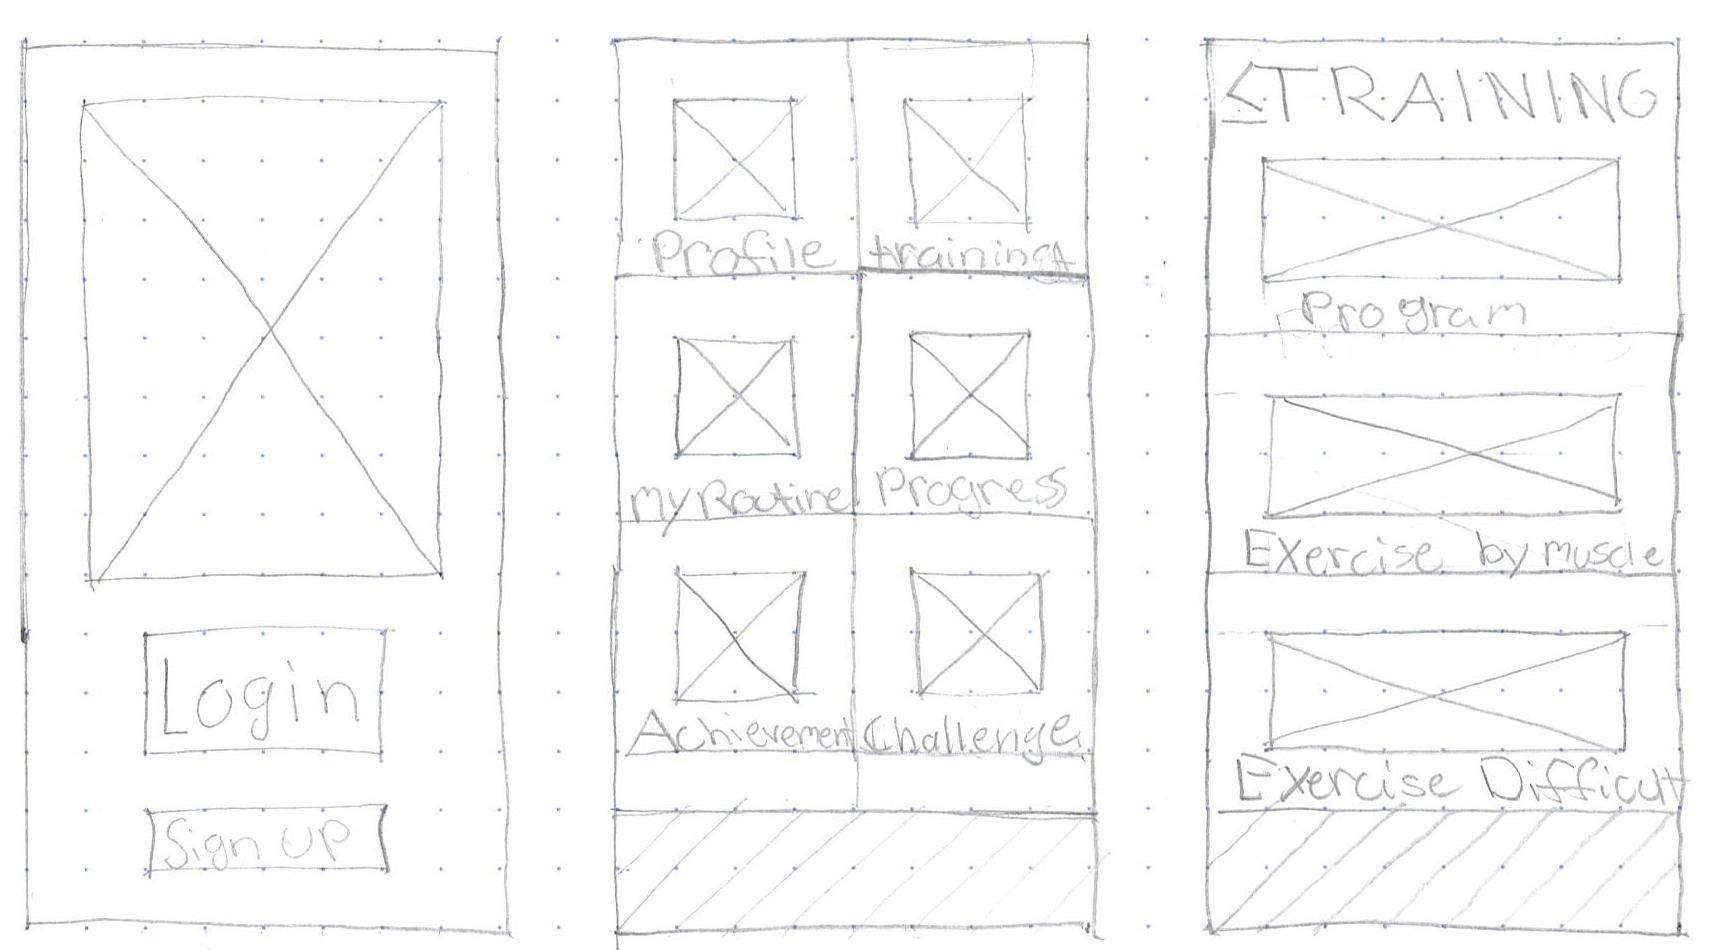 Login
Sign UP
Profile
training
My Routine
Progress
Achievement
Challenge
< TRAINING
Program
Exercise by muscle
Exercise Difficult